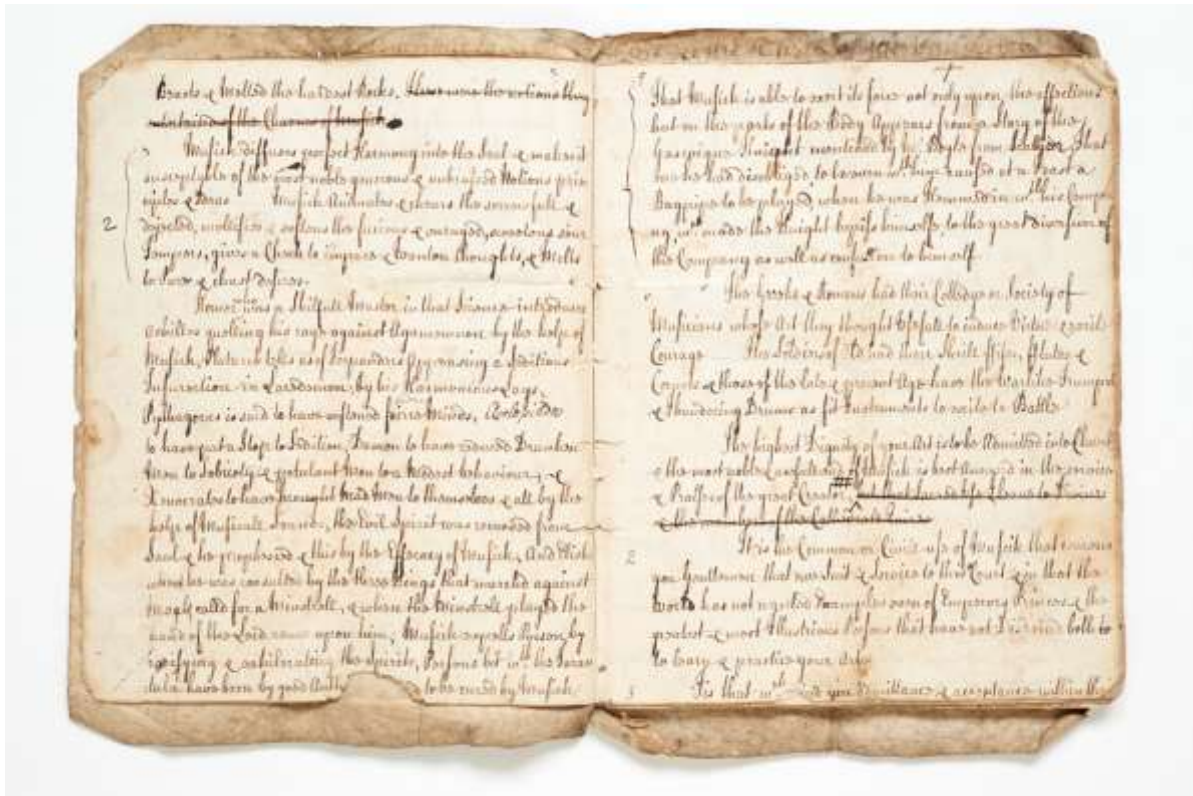 Beasts & Melted the hardest Rocks. these were the notions they
entertained of the Charms of Musick
Musick diffuses perfect Harmony into the Soul & makes it
susceptible of the most noble generous & Notions prin
ciples & Ideas Musick Animates & chears the sorrowfull &
dejected, mollifies & softens the furious & enraged, sour
Tempers, gives a Check to impure & wanton thoughts, & Melts
to pure & chast desires.
2
Homer who was a Skilfull Master in that Science introduces
Achilles quelling his rage against Agamemnon by the help of
Musick, Plutarch tells us of Terpanders appeasing a Seditious
Insurrection in Lacedemon, by his Harmonious Lays,
Pythagoras is said to have softned fierce Minds,
to have put a Stop to Sedition, Damon to have reduced Drunken
Men to Sobriety & petulant Men to a Modest behaviour, &
Xenocrates to have brought Mad Men to themselves & all by the
help of Musicall Sounds, the Evil Spirit was removed from
Saul & he prophesied & this by the Efficacy of Musick, And Elish
when he was consulted by the three Kings that marched against
Moab called for a Minstrell, & when the Minstrell played the
hand of the Lord came upon him, Musick expells Poyson by
rarifying & the Spirits, Persons bit wth the Taran
tula have been by good to be cured by Musick
That Musick is able to exert its force not only upon the affections
but on the parts of the Body Appears from a Story of the
Knight mentioned by Mr Boyle from Scaliger That
one he had disobliged to be even wth him caused at a Feast a
Bagpipe to be played when he was Hemmed in wth the Compa
ny, wch made the Knight bepiss himself, to the great diversion of
the Company as well as confusion to himself
The Greeks & Romans had their Colledge or Society of
Musicians whose Art they thought Usefull to induce Virtue & excite
Courage The Soldiers of Old had their Shrill Fifes, Flutes &
Cornets & those of the late & present Age have the Warlike Trumpet
& Thundering Drums as fit Instruments to excite to Battle
The highest Dignity of your Art is to be Admitted into Churches
& the most noble of Musick is best Answerd in the service
& Praise of the great Creator, but that sacred use I leave to
2
It is the Common or Civil use of Musick that concerns
you Gentlemen that now Suit & Service to this Court & in that the
World has not wanted Examples even of Emperors Princes & the
greatest & most Illustrious Persons that have not Disdained both to
to learn & practice your Art
3
Tis that wch you & acceptance within the